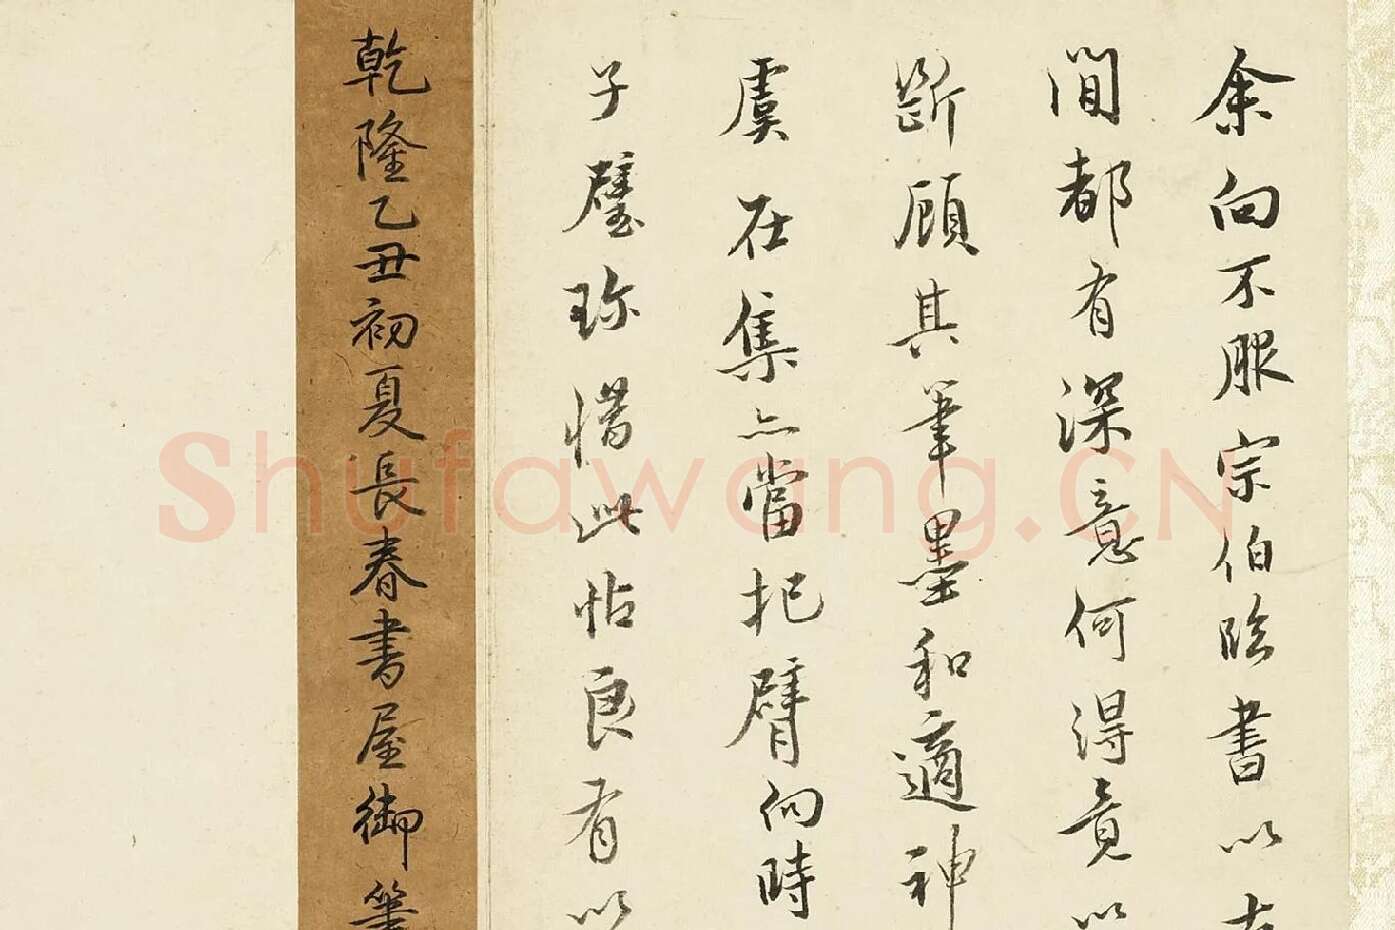 余向不服宗伯臨書以
間都有深意何得竟以
斷顧其筆墨和適神
虞在集亦當把臂向時
子璧珎惜此帖良有以
乾隆乙丑初夏長春書屋御筆
Shufawang.CN